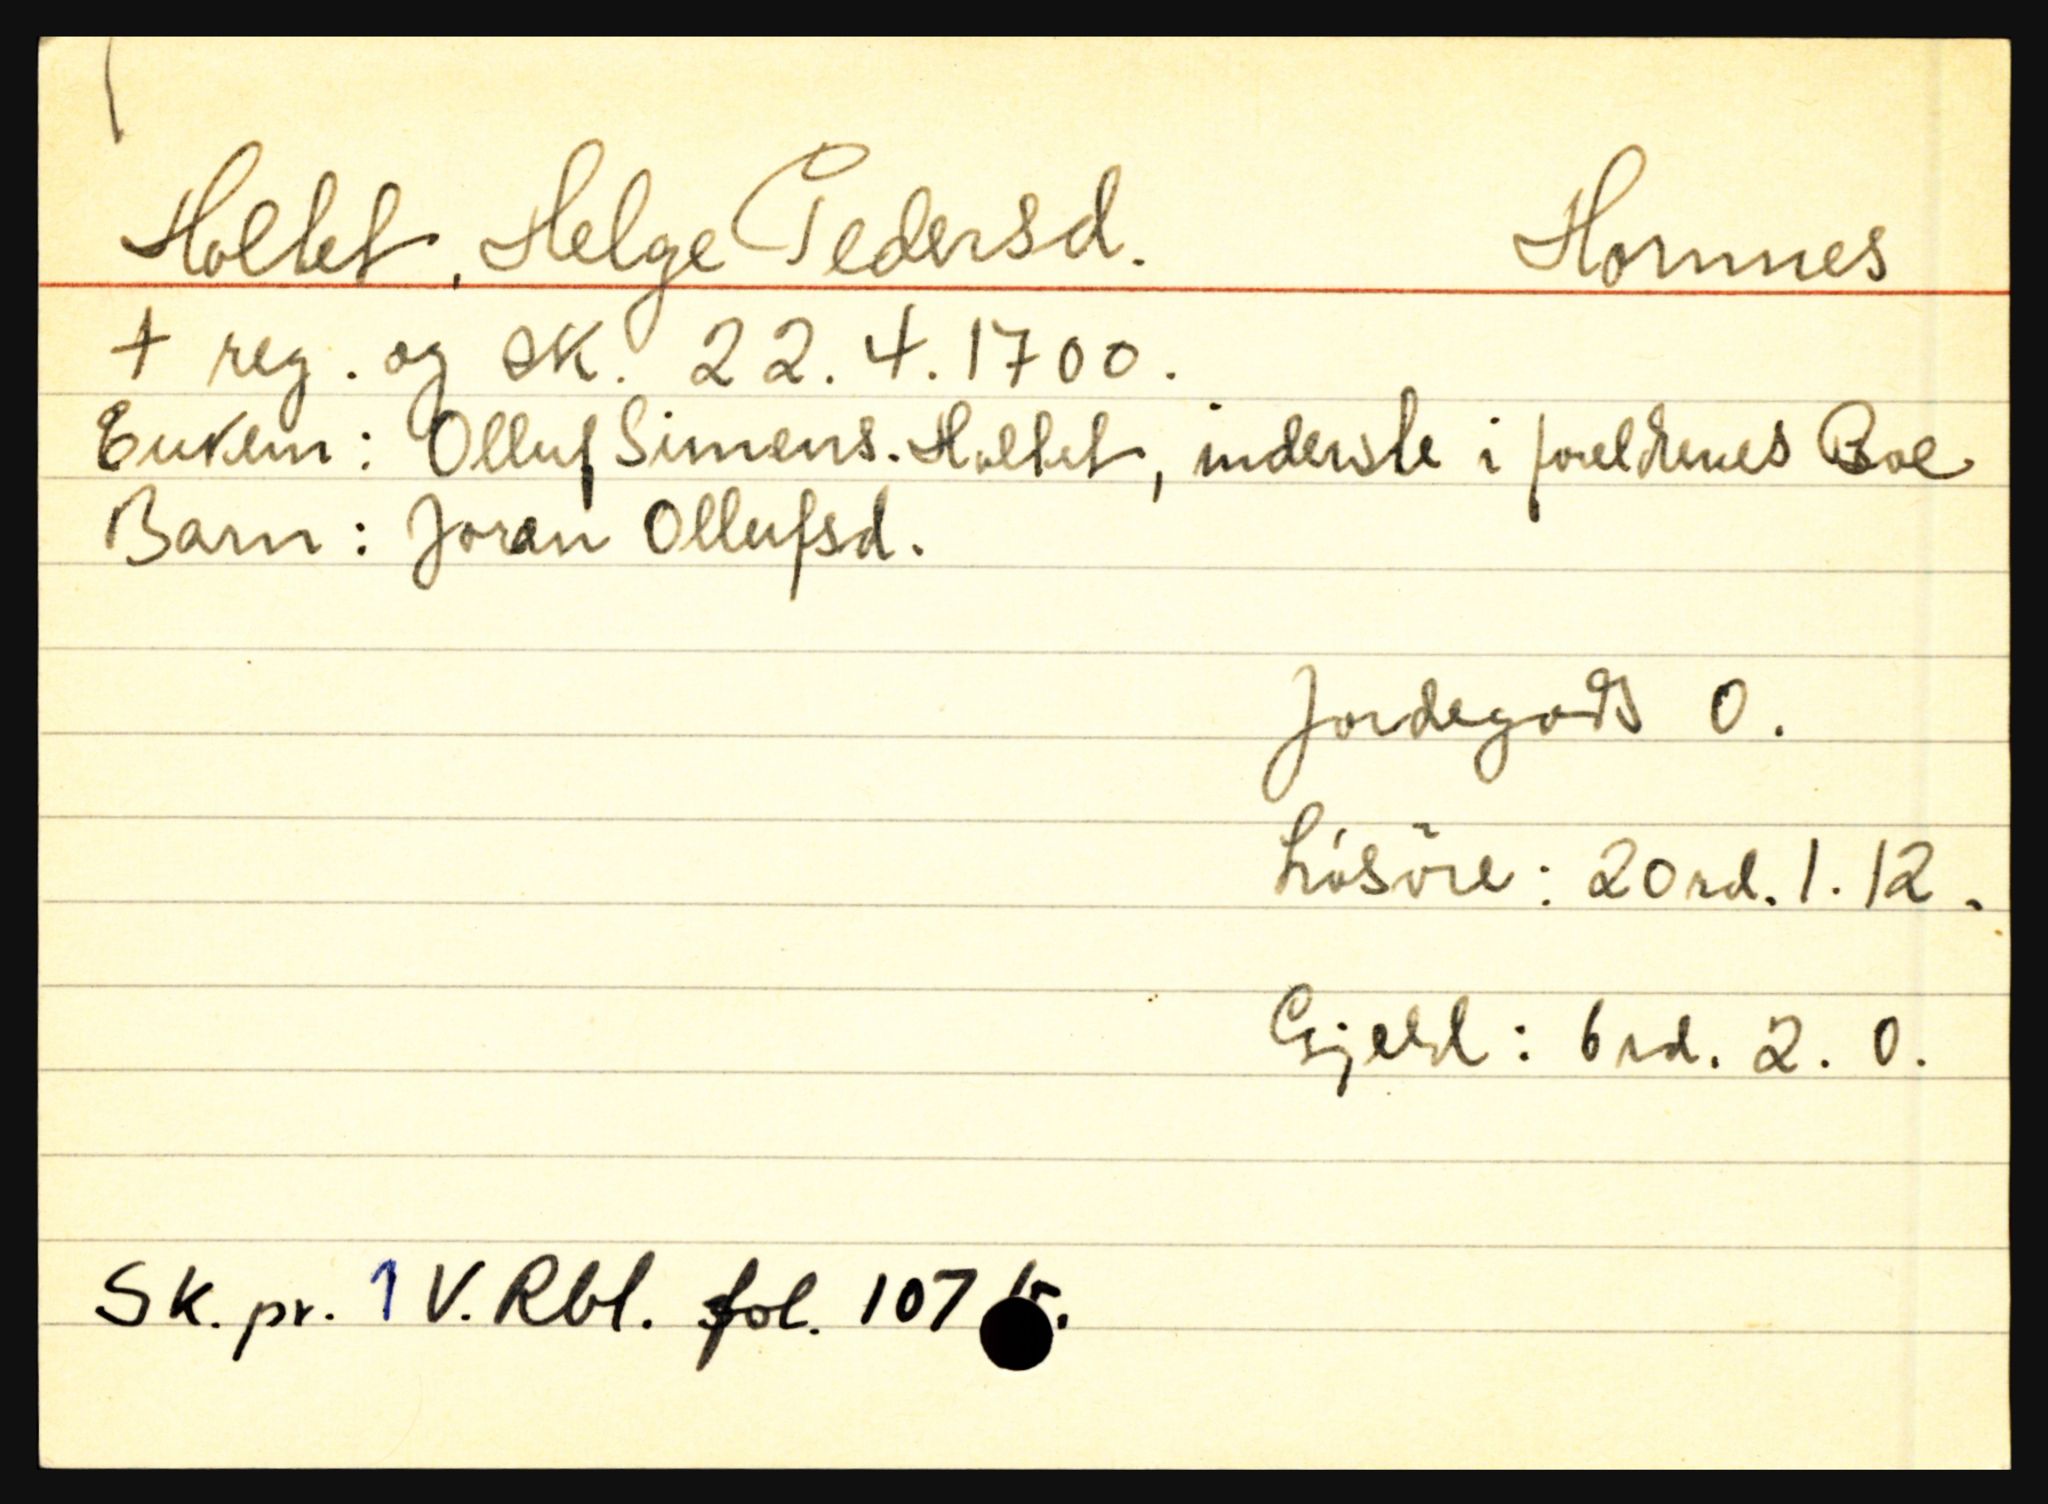 Holtet, Helge Pedersd. Hornnes
+ reg. og sk. 22.4.1700.
Enkem: Olluf Simens. Holtet, inderste i foreldrenes Boe
Barn: Joran Ollufsd.
Jordegods 0.
Lösöre: 20 rd. 1. 12.
Gjeld: 6 rd. 2. 0.
Sk. pr. 1 V. Rbl. fol. 107